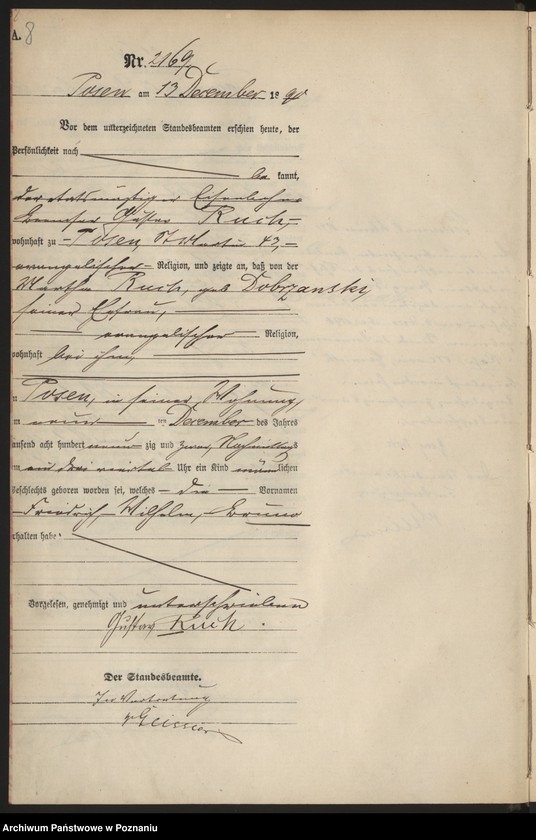 A. 8
Nr. 2169.
Posen am 13 December 1890
Vor dem unterzeichneten Standesbeamten erschien heute, der
Persönlichkeit nach
be kannt,
der etatsmäßige Eisenbahn-
bremser Gustav Ruch,
wohnhaft zu Posen, St Martin 42,
evangelischer Religion, und zeigte an, daß von der
Martha Ruch, geb Dobrzanski,
seiner Ehefrau,
evangelischer Religion,
wohnhaft bei ihm,
Posen, in seiner Wohnung,
neun ten December des Jahres
tausend acht hundert neunzig und zwar, Nachmittags
um ein drei viertel Uhr ein Kind männlichen
Geschlechts geboren worden sei, welches die Vornamen
Friedrich, Wilhelm, Bruno
erhalten habe.
Vorgelesen, genehmigt und unterschrieben
Gustav Ruch.
Der Standesbeamte.
In Vertretung
Archiwum Państwowe w Poznaniu